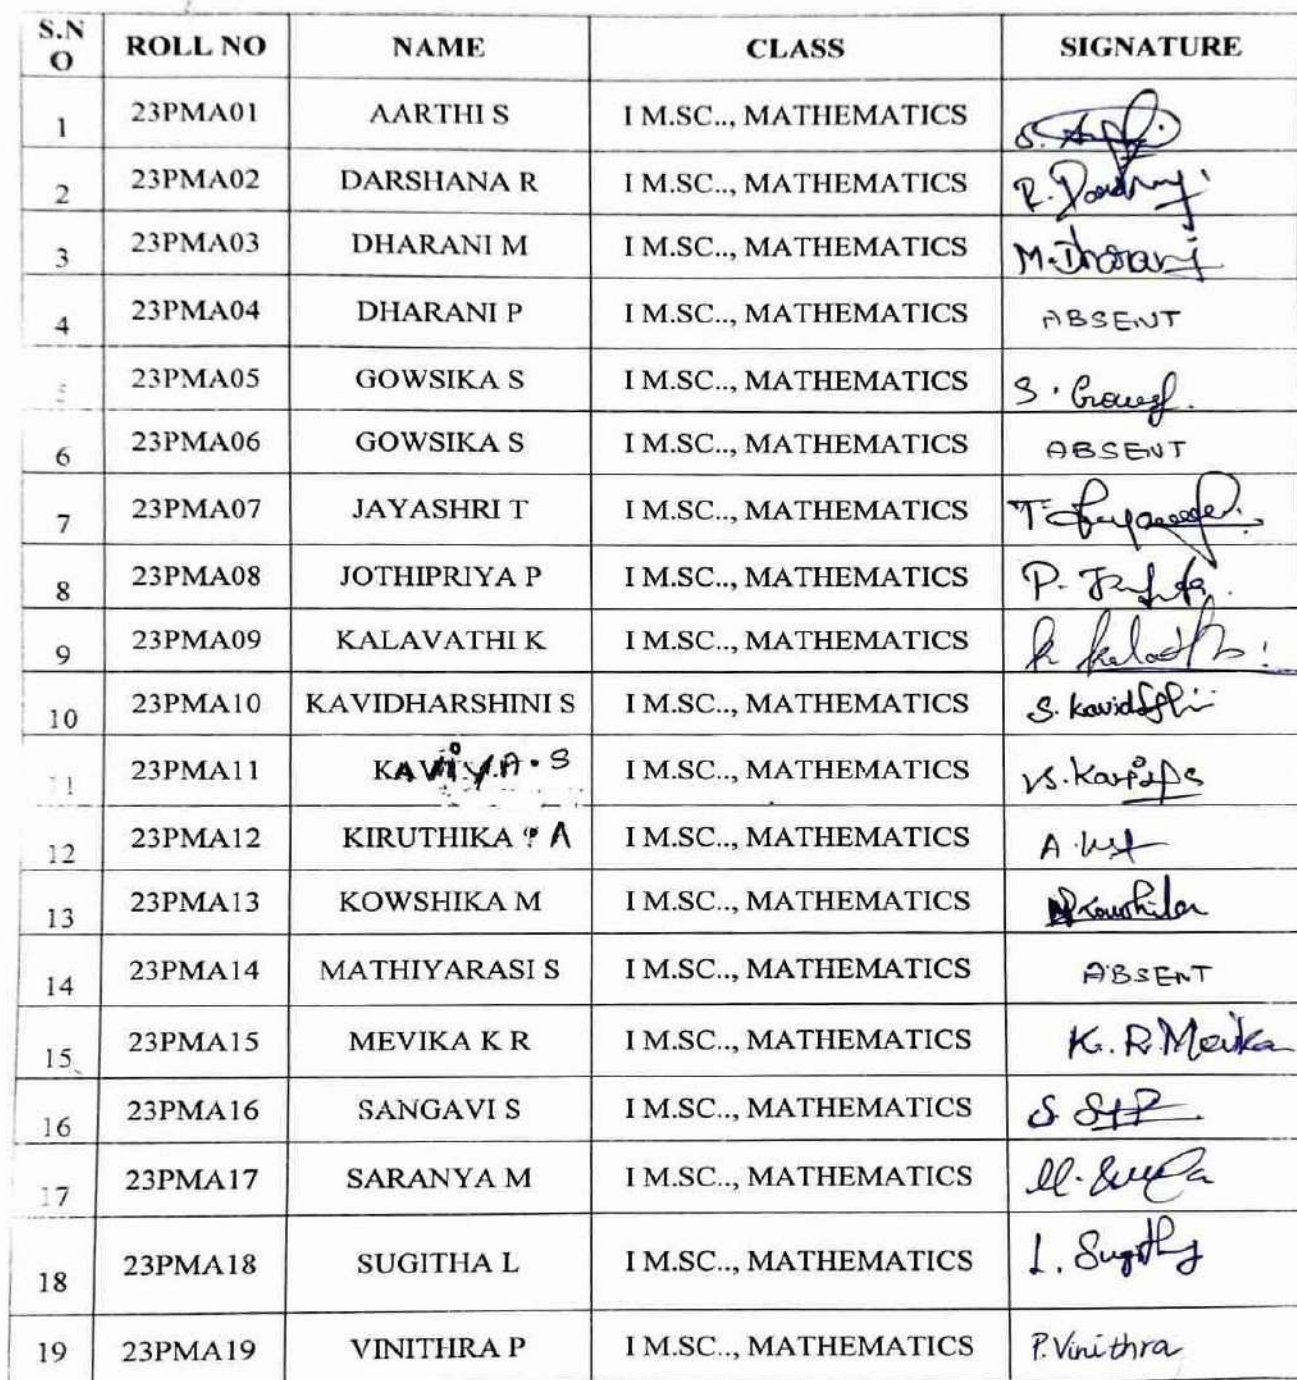 S.N
O ROLL NO NAME CLASS SIGNATURE
1 23PMA01 AARTHI S I M.SC.., MATHEMATICS
2 23PMA02 DARSHANA R I M.SC.., MATHEMATICS
3 23PMA03 DHARANI M I M.SC.., MATHEMATICS M. Dharani
4 23PMA04 DHARANI P I M.SC.., MATHEMATICS ABSENT
5 23PMA05 GOWSIKA S I M.SC.., MATHEMATICS
6 23PMA06 GOWSIKA S I M.SC.., MATHEMATICS ABSENT
7 23PMA07 JAYASHRI T I M.SC.., MATHEMATICS
8 23PMA08 JOTHIPRIYA P I M.SC.., MATHEMATICS
9 23PMA09 KALAVATHI K I M.SC.., MATHEMATICS
10 23PMA10 KAVIDHARSHINI S I M.SC.., MATHEMATICS
11 23PMA11 KAVIYA.S I M.SC.., MATHEMATICS
12 23PMA12 KIRUTHIKA A I M.SC.., MATHEMATICS
13 23PMA13 KOWSHIKA M I M.SC.., MATHEMATICS
14 23PMA14 MATHIYARASI S I M.SC.., MATHEMATICS ABSENT
15 23PMA15 MEVIKA K R I M.SC.., MATHEMATICS K. R. Mevika
16 23PMA16 SANGAVI S I M.SC.., MATHEMATICS
17 23PMA17 SARANYA M I M.SC.., MATHEMATICS
18 23PMA18 SUGITHA L I M.SC.., MATHEMATICS L. Sugitha
19 23PMA19 VINITHRA P I M.SC.., MATHEMATICS P. Vinithra